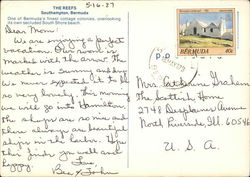 THE REEFS
Southampton, Bermuda
One of Bermuda's finest cottage colonies, overlooking
its own secluded South Shore beach.
5-16-87
Dear Mom!
We are enjoying a perfect
vacation. Our room is
marked with the arrow. The
weather is summer and
we never expected it to be
so very lovely. This morning
we will go into Hamilton.
The shops are so nice and
there always are beautiful
ships in the harbor. Hope
this finds you well and
happy.
Love,
Bev & John
BERMUDA
40c
Mrs. Catherine Graham
The Scottish Home
2748 Desplaines Avenue
North Riverside, Ill. 60546
U. S. A.